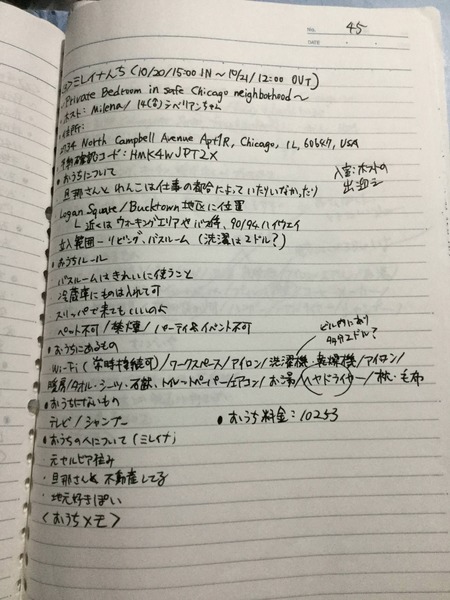 No. 45
DATE
ミレイナんち (10/20/15:00 IN ~ 10/21/12:00 OUT)
Private Bedroom in safe Chicago neighborhood~
・ホスト: Milena/
・住所:
2134 North Campbell Avenue Apt1R, Chicago, IL, 60647, USA
予約確認コード: HMK4WJPT2X
入室: ホストの出迎え
● おうちについて
旦那さんとわんこは仕事の都合によっていたりいなかったり
Logan Square/Bucktown 地区に位置
└ 近くはウォーキングエリアやバス停、90/94ハイウェイ
立入範囲ーリビング、バスルーム (洗濯は2ドル?)
● おうちルール
バスルームはきれいに使うこと
冷蔵庫にものは入れて可
スリッパで来てもいいのよ
ペット不可/禁煙/パーティ&イベント不可
ビル内にあり
● おうちにあるもの
Wi-Fi (常時接続可)/ワークスペース/アイロン/洗濯機・乾燥機/アイロン/
暖房/タオル・シーツ・石鹸、トイレットペーパー/エアコン/お湯/ヘヤドライヤー/枕・毛布
● おうちにないもの
テレビ/シャンプー
● おうち料金: 10253
● おうちの人について (ミレイナ)
・元セルビア住み
・旦那さんと不動産してる
・地元好きぽい
〈おうちメモ〉